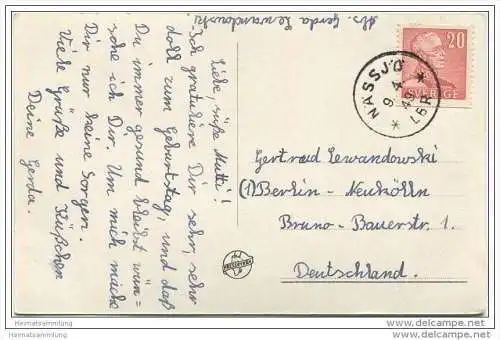 Abs. Gerda Lewandowski
Liebe, süße Mutti!
Ich gratuliere Dir sehr, sehr
doll zum Geburtstag, und daß
Du immer gesund bleibst wün=
sche ich Dir. Um mich mache
Dir nur keine Sorgen.
Viele Grüße und Küßchen
Deine Gerda.
20
SVERIGE
NÄSSJÖ
9 4
49
LBR
Gertrud Lewandowski
(1) Berlin - Neukölln
Bruno-Bauerstr. 1.
Deutschland.
Heimatsammlung
Heimatsammlung